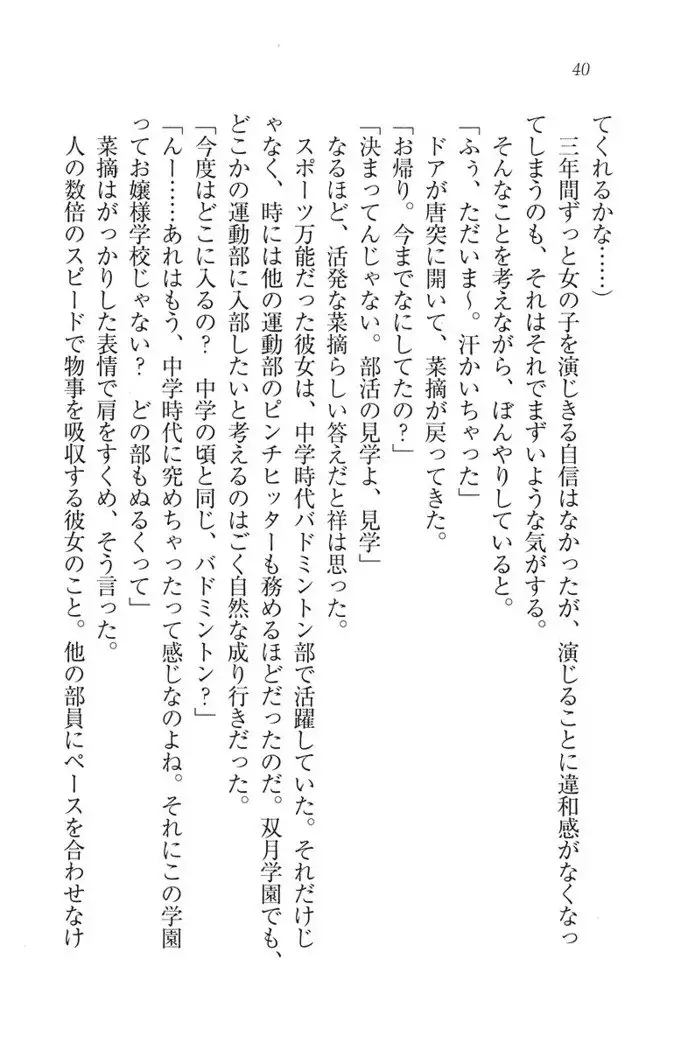 40
てくれるかな……）
　三年間ずっと女の子を演じきる自信はなかったが、演じることに違和感がなくなっ
てしまうのも、それはそれでまずいような気がする。
　そんなことを考えながら、ぼんやりしていると。
「ふぅ、ただいま〜。汗かいちゃった」
　ドアが唐突に開いて、菜摘が戻ってきた。
「お帰り。今までなにしてたの？」
「決まってんじゃない。部活の見学よ、見学」
　なるほど、活発な菜摘らしい答えだと祥は思った。
　スポーツ万能だった彼女は、中学時代バドミントン部で活躍していた。それだけじ
ゃなく、時には他の運動部のピンチヒッターも務めるほどだったのだ。双月学園でも、
どこかの運動部に入部したいと考えるのはごく自然な成り行きだった。
「今度はどこに入るの？　中学の頃と同じ、バドミントン？」
「んー……あれはもう、中学時代に究めちゃったって感じなのよね。それにこの学園
ってお嬢様学校じゃない？　どの部もぬるくって」
　菜摘はがっかりした表情で肩をすくめ、そう言った。
　人の数倍のスピードで物事を吸収する彼女のこと。他の部員にペースを合わせなけ